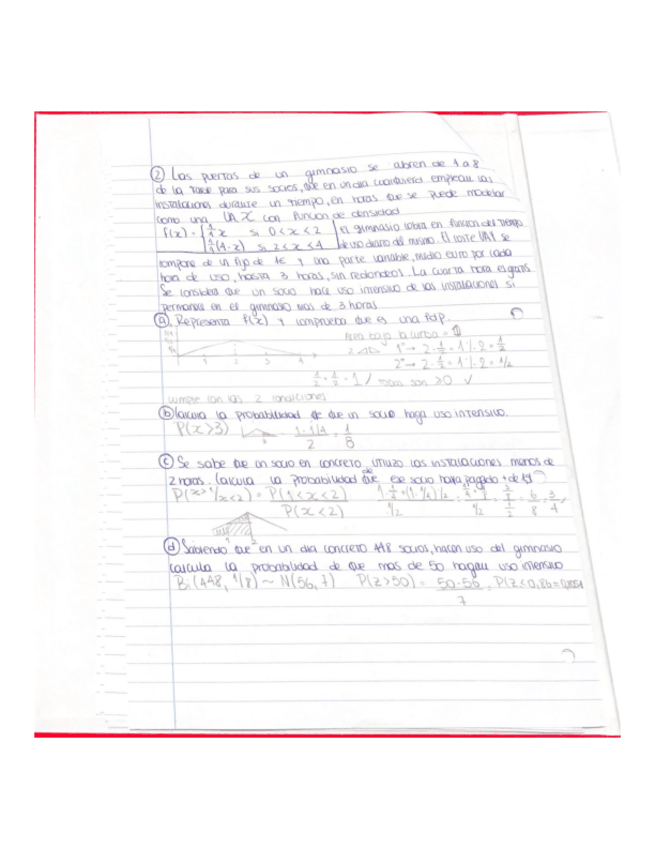 ② Las puertas de un gimnasio se abren de 1 a 8
de la tarde para sus socios, que en un dia cualquiera emplean las
instalaciones durante un tiempo, en horas que se puede modelar
como una VA X con funcion de densidad
f(x) = { 1/4 x si 0 < x < 2 | El gimnasio cobra en funcion del tiempo
1/4 (4-x) si 2 < x < 4 | de uso diario del mismo. El coste se
compone de un fijo de 1€ y una parte variable, medio euro por cada
hora de uso, hasta 3 horas, sin redondeos. La cuarta hora es gratis.
Se considera que un socio hace uso intensivo de las instalaciones si
permanece en el gimnasio mas de 3 horas
ⓐ Representa f(x) y comprueba que es una fdp.
Area bajo la curva = 1
1º → 2·1/2 = 1 /. 2 = 1/2
2º → 2·1/2 = 1 /. 2 = 1/2
1 2 3 4
1/2 + 1/2 = 1 / todas son ≥0 ✓
cumple con las 2 condiciones
ⓑ Calcula la probabilidad de que un socio haga uso intensivo.
P(x>3) 1·1/4 / 2 = 1/8
ⓒ Se sabe que un socio en concreto, utilizo las instalaciones menos de
2 horas. Calcula la probabilidad de que ese socio haya pagado + de
P(x>1/x<2) = P(1<x<2) / P(x<2) = 6/8 = 3/4
1 2
ⓓ Sabiendo que en un dia concreto 448 socios, hacen uso del gimnasio
calcula la probabilidad de que mas de 50 hagan uso intensivo
B(448, 1/8) ~ N(56, 7) P(Z>50) = 50-56 / 7 = P(Z<0,86 =